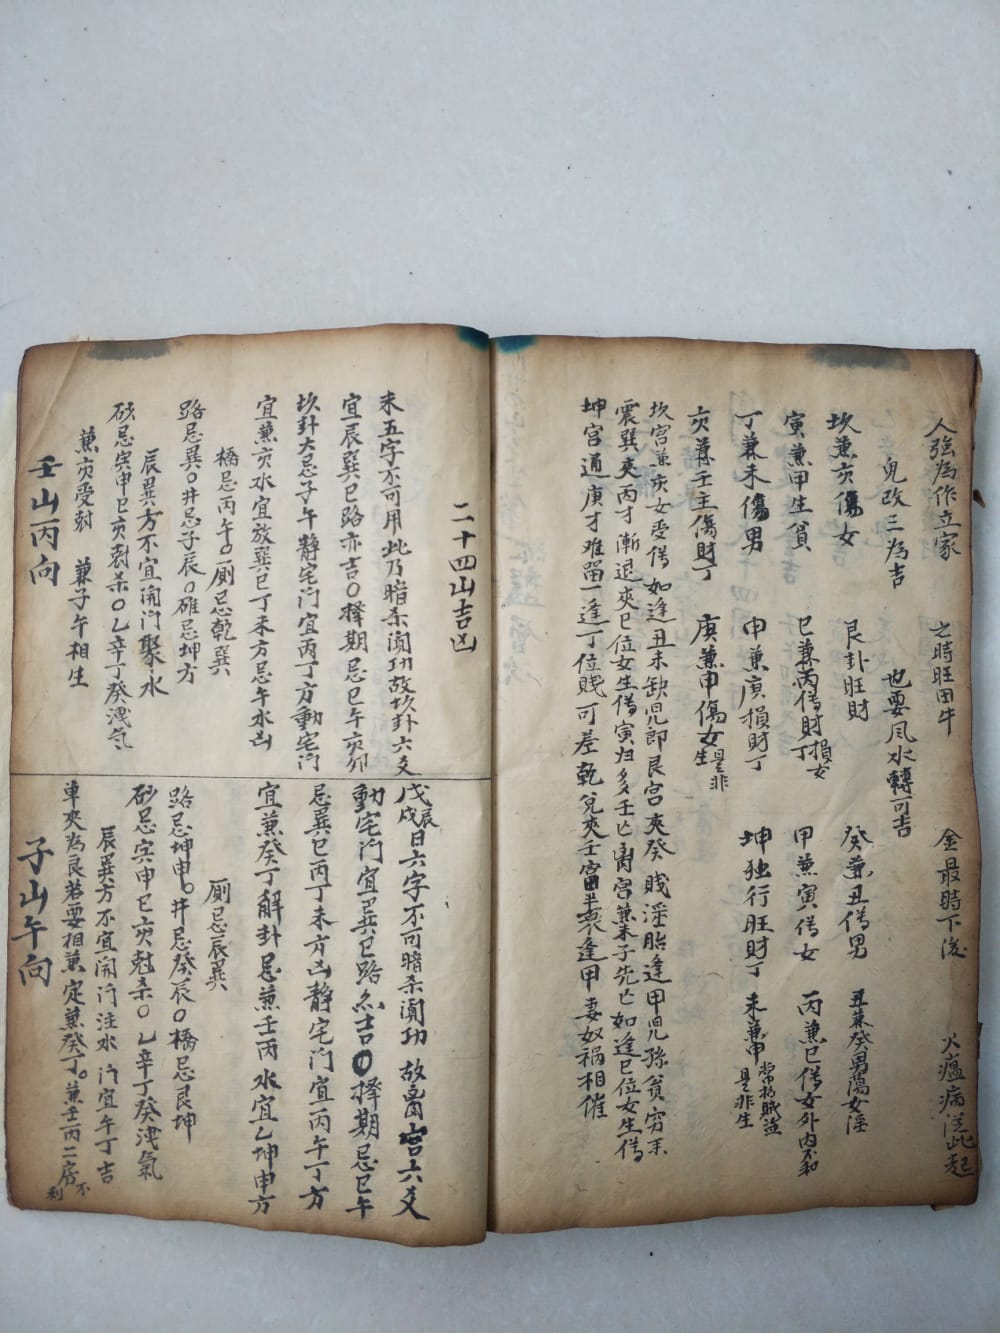 人強為作立家 之時旺田牛 金最時下後 火瘟病従此起
兒改三為吉 也要风水轉可吉
坎兼亥傷女 艮卦旺財 癸兼丑傷男 丑兼癸男蕩女淫
寅兼甲生貧 巳兼丙傷財丁損女 甲兼寅傷女 丙兼巳傷女外内不和
丁兼未傷男 申兼庚損財丁 坤独行旺財丁 未兼申常招賊盜是非生
亥兼壬主傷財丁 庚兼申傷女是非生
坎宮兼亥女受傷 如逢丑未缺児郎 艮宮夾癸賤淫胎 逢甲児孫貧穷
震巽夾丙才漸退 夾巳位女生傷 寅归多壬亡 离宮兼子先亡 如逢巳位女生傷
坤宮通庚才难留 一逢丁位賤可差 乾兌夾壬富半衰 逢甲妻奴祸相催
二十四山吉凶
未五字不可用此乃暗杀 故坎卦六爻
宜辰巽巳路亦吉〇择期忌巳午亥卯
坎卦大忌子午靜宅门宜丙丁方動宅门
宜兼亥水宜放巽巳丁未方忌午水凶
橋忌丙午〇厠忌乾巽
路忌巽〇井忌子辰〇碓忌坤方
辰巽方不宜開门聚水
砂忌寅申巳亥尅杀〇乙辛丁癸洩气
兼亥受尅 兼子午相生
壬山丙向
戊辰戊戌日六字不可暗杀 故离宮六爻
動宅门宜巽巳路亦吉〇择期忌巳午
忌巽巳丙丁未方凶静宅门宜丙午丁方
宜兼癸丁解卦忌兼壬丙水宜乙坤申方
厠忌辰巽
路忌坤申〇井忌癸辰〇橋忌艮坤
砂忌寅申巳亥尅杀〇乙辛丁癸洩氣
辰巽方不宜開门注水 门宜午丁吉
車夾為良若要相兼定兼癸丁。兼壬丙二房不利
子山午向